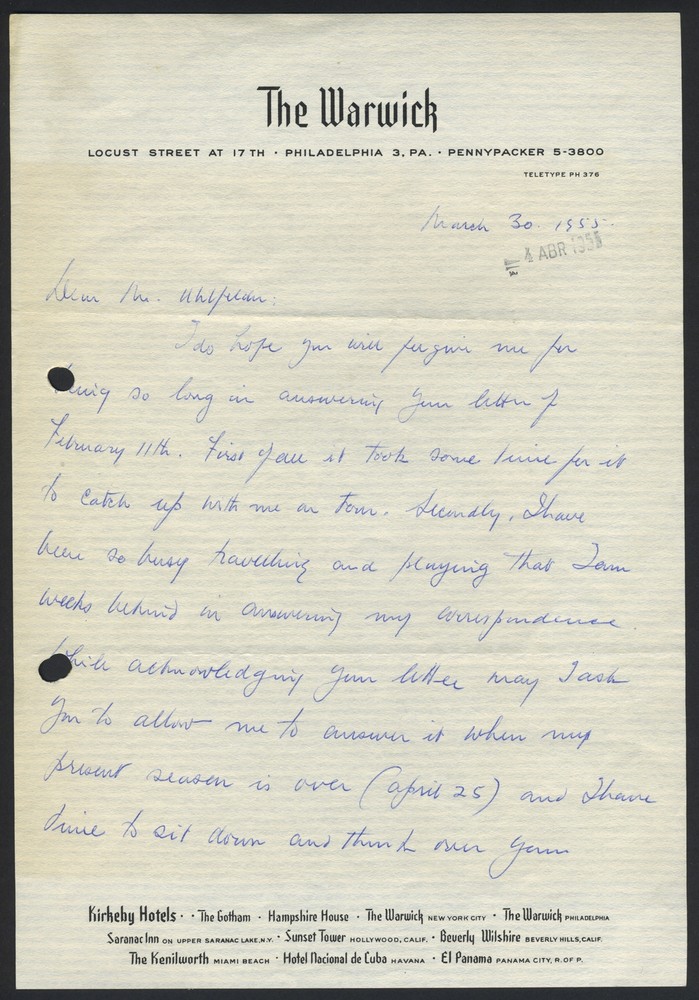 The Warwick
LOCUST STREET AT 17TH · PHILADELPHIA 3, PA. · PENNYPACKER 5-3800
TELETYPE PH 376
March 30. 1955.
4 ABR 1955
Dear Mr.
I do hope you will forgive me for
being so long in answering your letter of
February 11th. First of all it took some time for it
to catch up with me on tour. Secondly, I have
been so busy travelling and playing that I am
weeks behind in answering my correspondence.
While acknowledging your letter may I ask
you to allow me to answer it when my
present season is over (April 25) and I have
time to sit down and think over your
Kirkeby Hotels · · The Gotham · Hampshire House · The Warwick NEW YORK CITY · The Warwick PHILADELPHIA
Saranac Inn ON UPPER SARANAC LAKE, N.Y. · Sunset Tower HOLLYWOOD, CALIF. · Beverly Wilshire BEVERLY HILLS, CALIF.
The Kenilworth MIAMI BEACH · Hotel Nacional de Cuba HAVANA · El Panama PANAMA CITY, R. OF P.